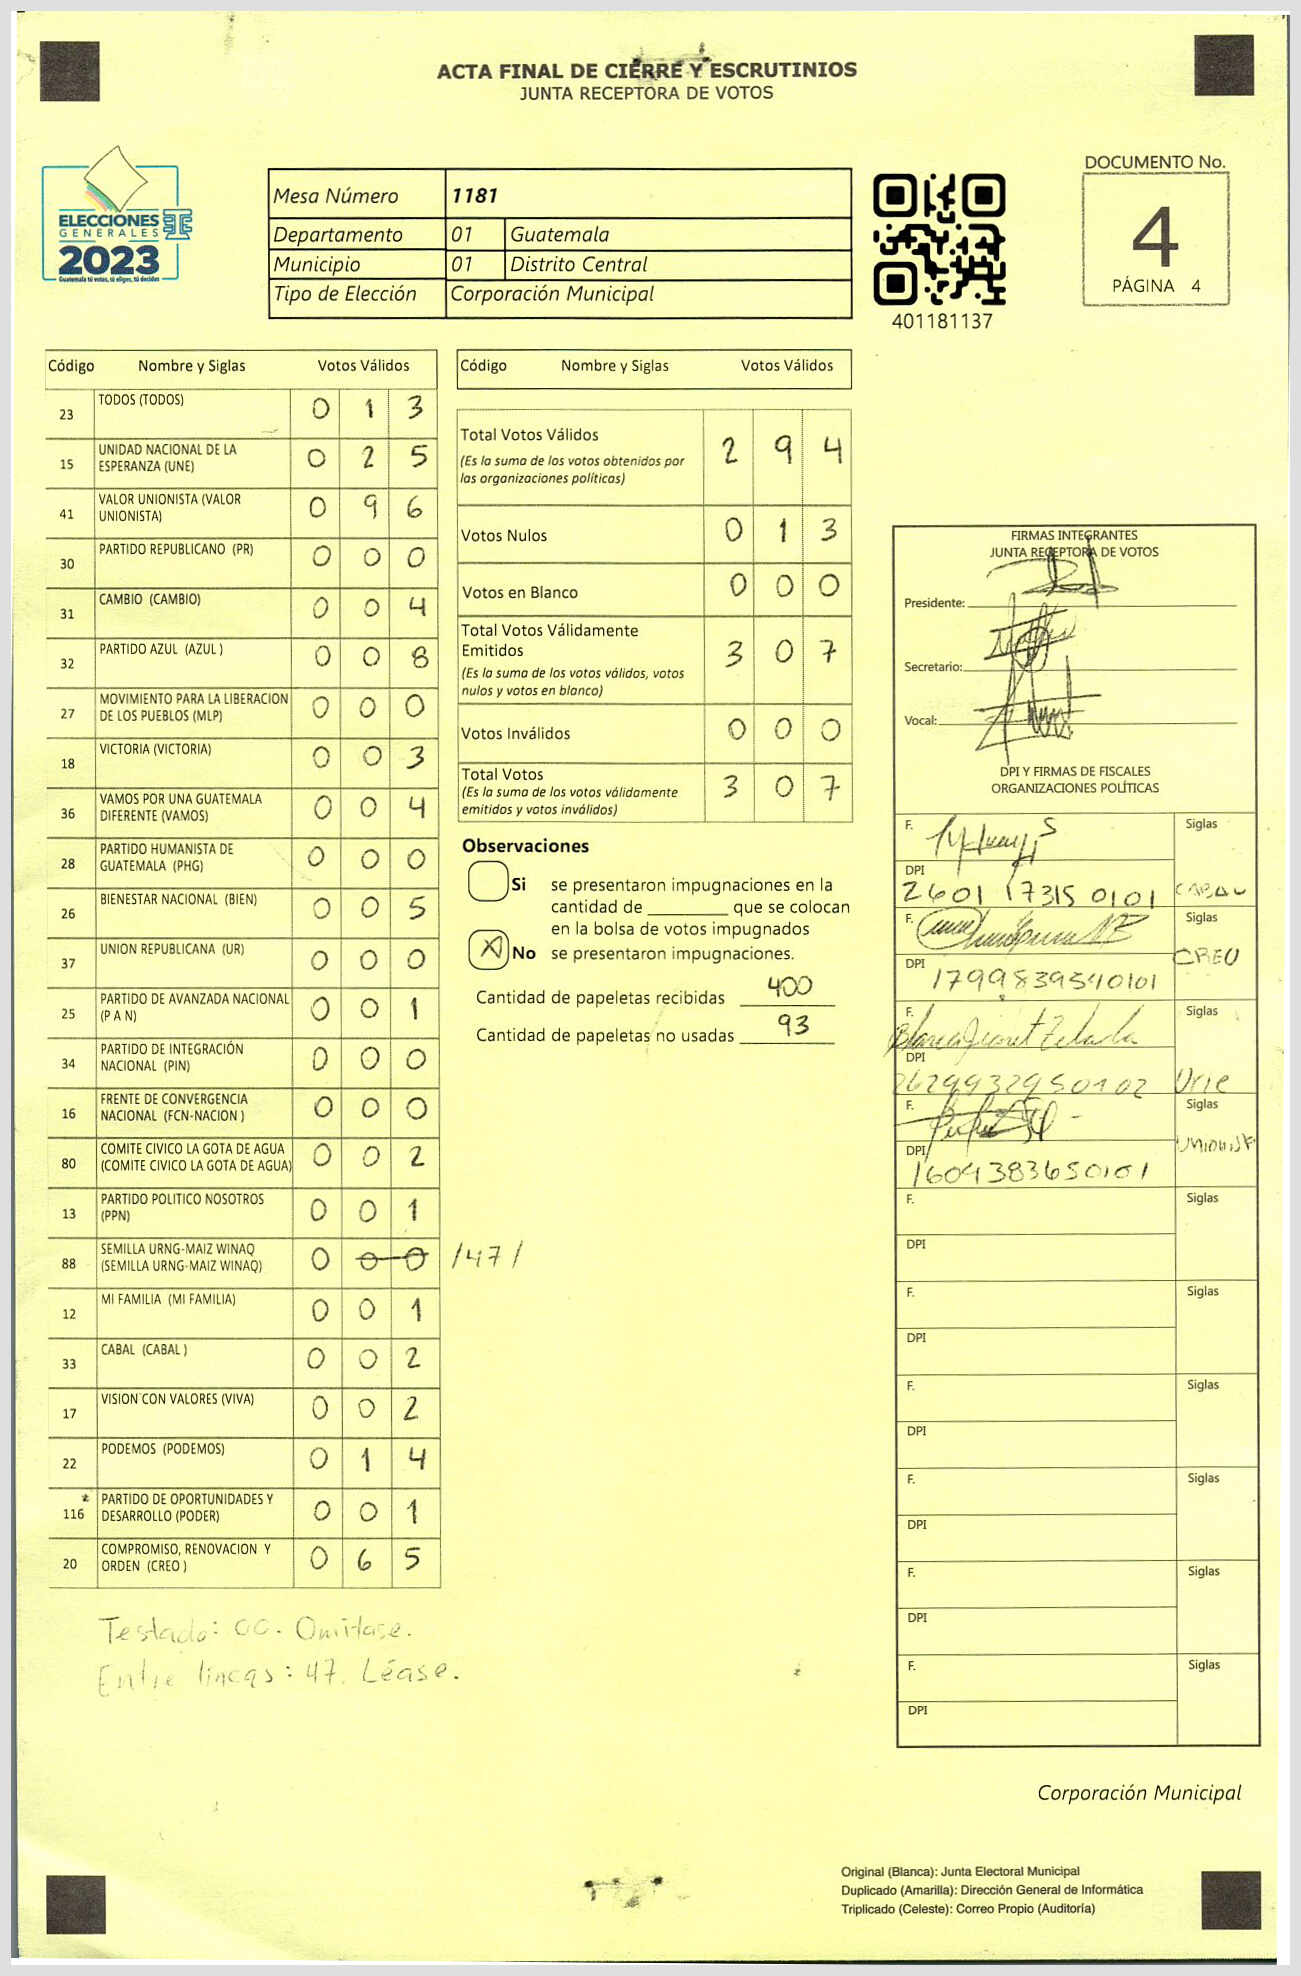 ACTA FINAL DE CIERRE Y ESCRUTINIOS
JUNTA RECEPTORA DE VOTOS
ELECCIONES
GENERALES
2023
Guatemala tú votas, tú eliges, tú decides
Mesa Número 1181
Departamento 01 Guatemala
Municipio 01 Distrito Central
Tipo de Elección Corporación Municipal
401181137
DOCUMENTO No.
4
PÁGINA 4
Código Nombre y Siglas Votos Válidos
23 TODOS (TODOS) 0 1 3
15 UNIDAD NACIONAL DE LA ESPERANZA (UNE) 0 2 5
41 VALOR UNIONISTA (VALOR UNIONISTA) 0 9 6
30 PARTIDO REPUBLICANO (PR) 0 0 0
31 CAMBIO (CAMBIO) 0 0 4
32 PARTIDO AZUL (AZUL ) 0 0 8
27 MOVIMIENTO PARA LA LIBERACION DE LOS PUEBLOS (MLP) 0 0 0
18 VICTORIA (VICTORIA) 0 0 3
36 VAMOS POR UNA GUATEMALA DIFERENTE (VAMOS) 0 0 4
28 PARTIDO HUMANISTA DE GUATEMALA (PHG) 0 0 0
26 BIENESTAR NACIONAL (BIEN) 0 0 5
37 UNION REPUBLICANA (UR) 0 0 0
25 PARTIDO DE AVANZADA NACIONAL (P A N) 0 0 1
34 PARTIDO DE INTEGRACIÓN NACIONAL (PIN) 0 0 0
16 FRENTE DE CONVERGENCIA NACIONAL (FCN-NACION ) 0 0 0
80 COMITE CIVICO LA GOTA DE AGUA (COMITE CIVICO LA GOTA DE AGUA) 0 0 2
13 PARTIDO POLITICO NOSOTROS (PPN) 0 0 1
88 SEMILLA URNG-MAIZ WINAQ (SEMILLA URNG-MAIZ WINAQ) 0 0 0 /47/
12 MI FAMILIA (MI FAMILIA) 0 0 1
33 CABAL (CABAL ) 0 0 2
17 VISION CON VALORES (VIVA) 0 0 2
22 PODEMOS (PODEMOS) 0 1 4
116 PARTIDO DE OPORTUNIDADES Y DESARROLLO (PODER) 0 0 1
20 COMPROMISO, RENOVACION Y ORDEN (CREO ) 0 6 5
Testado: 00. Omitase.
Entre lineas: 47. Léase.
Código Nombre y Siglas Votos Válidos
Total Votos Válidos 2 9 4
(Es la suma de los votos obtenidos por
las organizaciones políticas)
Votos Nulos 0 1 3
Votos en Blanco 0 0 0
Total Votos Válidamente
Emitidos 3 0 7
(Es la suma de los votos válidos, votos
nulos y votos en blanco)
Votos Inválidos 0 0 0
Total Votos 3 0 7
(Es la suma de los votos válidamente
emitidos y votos inválidos)
Observaciones
Si se presentaron impugnaciones en la
cantidad de ________ que se colocan
en la bolsa de votos impugnados
X No se presentaron impugnaciones.
Cantidad de papeletas recibidas 400
Cantidad de papeletas no usadas 93
FIRMAS INTEGRANTES
JUNTA RECEPTORA DE VOTOS
Presidente:
Secretario:
Vocal:
DPI Y FIRMAS DE FISCALES
ORGANIZACIONES POLÍTICAS
F. Siglas
DPI
2601 17315 0101 CABAL
F. Siglas
CREO
DPI
1799839540101
F. Siglas
DPI
2629932950102
F. Siglas
DPI
1604383650101
F. Siglas
DPI
F. Siglas
DPI
F. Siglas
DPI
F. Siglas
DPI
F. Siglas
DPI
F. Siglas
DPI
Corporación Municipal
Original (Blanca): Junta Electoral Municipal
Duplicado (Amarilla): Dirección General de Informática
Triplicado (Celeste): Correo Propio (Auditoría)